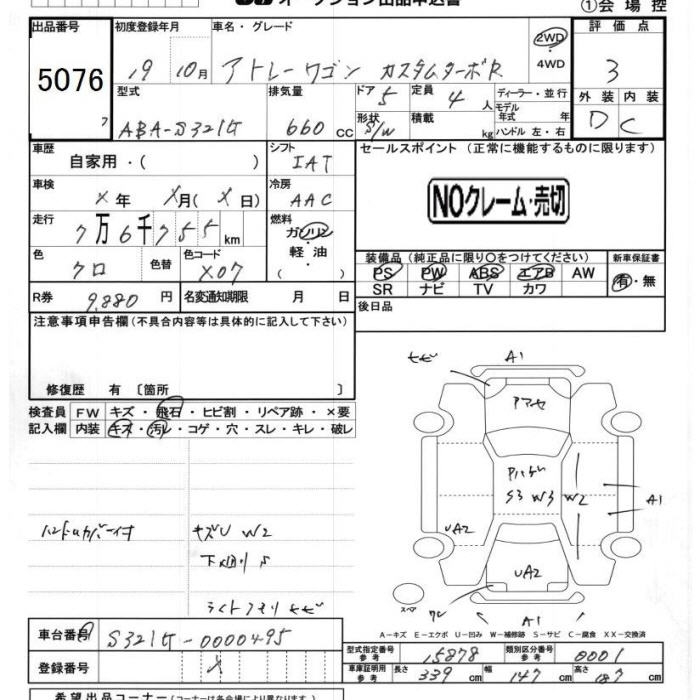 オークション出品申込書
①会場控
出品番号 初度登録年月 車名・グレード 評価点
5076
19 10月 アトレーワゴン カスタムターボR 2WD・4WD 3
型式 排気量 ドア 5 定員 4人 ディーラー・並行 外装 内装
モデル年式 年
ABA-S321G 660cc 形状 S/W 積載 kg ハンドル 左・右 D C
車歴 シフト セールスポイント (正常に機能するものに限ります)
自家用・( ) IAT
車検 冷房
×年 ×月(×日) AAC NOクレーム・売切
走行 燃料
7万6千755km ガソリン
軽・油
( )
色 色替 色コード 装備品 (純正品に限り○をつけてください) 新車保証書
クロ X07 PS PW ABS エアB AW 有・無
SR ナビ TV カワ
R券 9,880円 名変通知期限 月 日 後日品
注意事項申告欄(不具合内容等は具体的に記入して下さい)
修復歴 有 〔箇所 〕
検査員 FW キズ・飛石・ヒビ割・リペア跡・×要
記入欄 内装 キズ・汚レ・コゲ・穴・スレ・キレ・破レ
A1
S3 W3 W2
A1
UA2
UA2
A1
ハンドルカバー付 キズU W2
下回り S
スペア
A-キズ E-エクボ U-凹み W-補修跡 S-サビ C-腐食 XX-交換済
車台番号 S321G-0000495
登録番号 ×
型式指定番号 参考 15878 類別区分番号 参考 0001
車庫証明用 参考 長さ 339cm 幅 147cm 高さ 187cm
希望出品コーナー (コーナーは各会場により異なります)